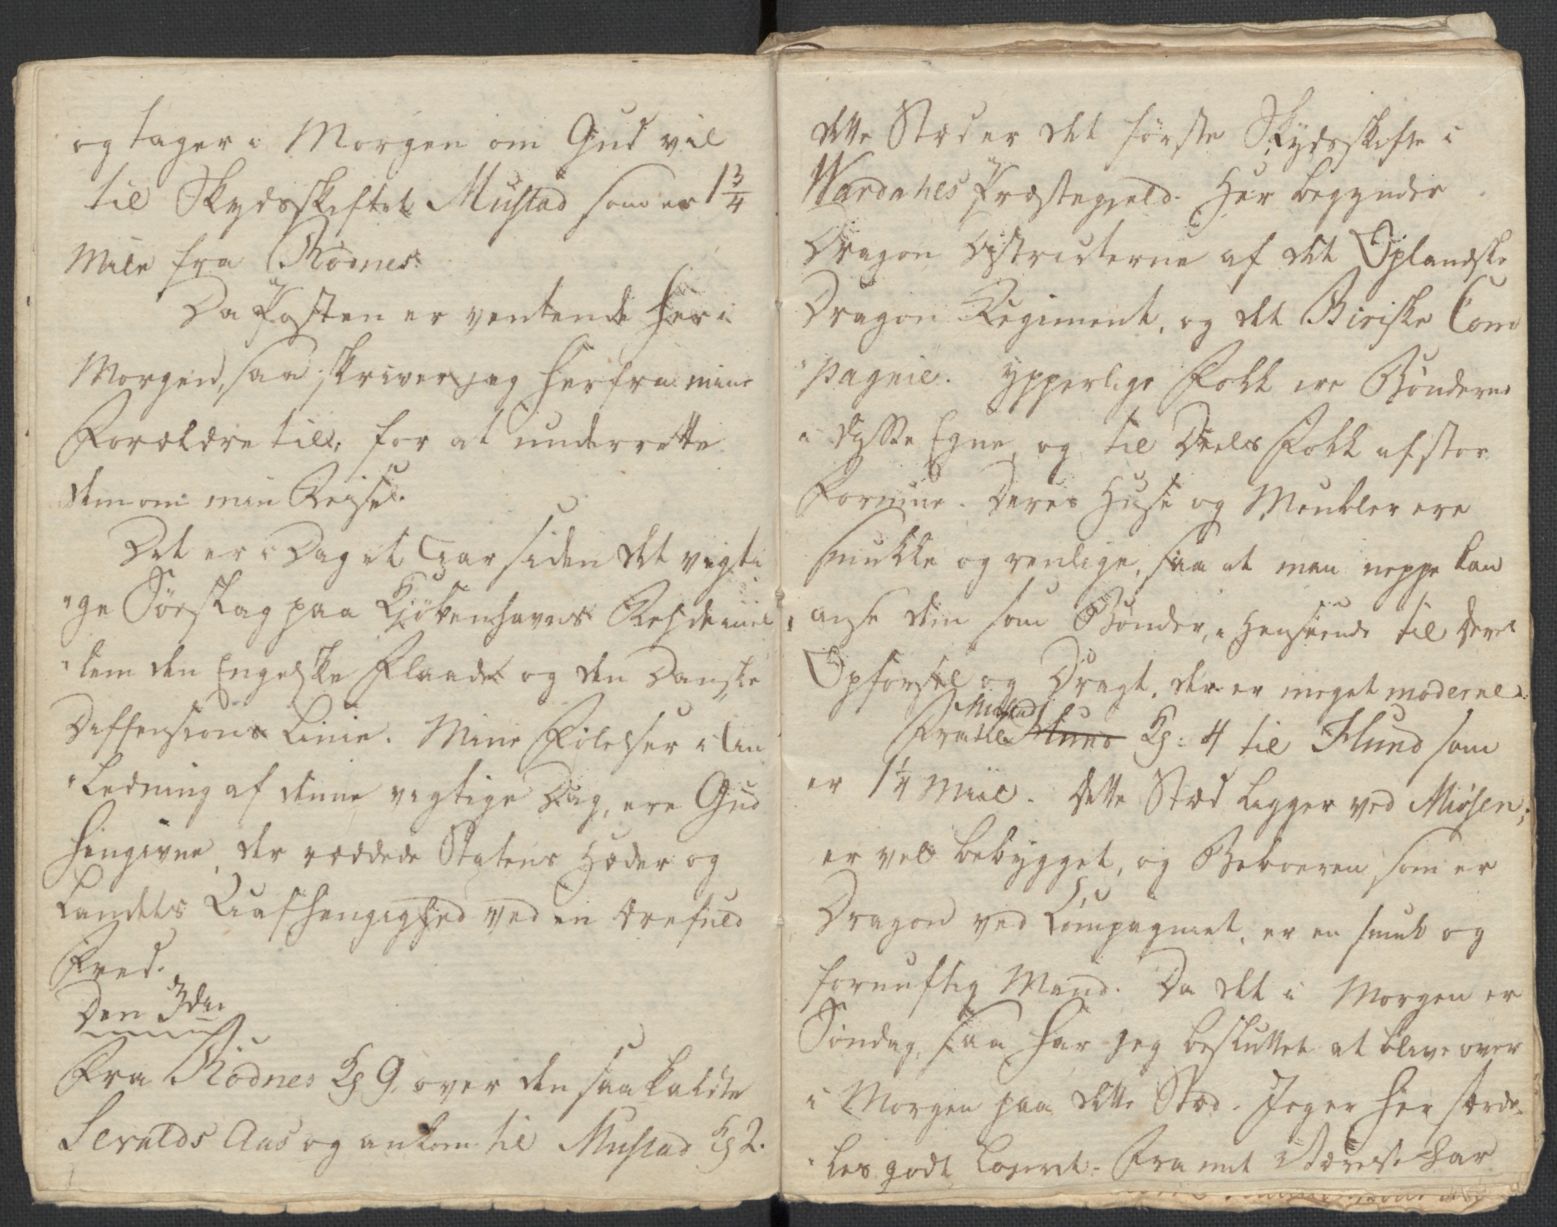 og tager i Morgen om Gud vil
til Skydsskiftet Mustad som er 1 3/4
Miile fra Rödnes.
Da Posten er ventende her i
Morgen, saa skriver jeg herfra mine
Forældre till, for at underrette
dem om min Reyse.
Det er i Dag et Aar siden det vigti
ge Söeslag paa Kjöbenhavns Rehd imel
lem den Engelske Flaade og den Danske
Deffensions Linie. Mine Følelser i An
ledning af denne vigtige Dag, ere Gud
hengivne, der reddede Statens Hæder og
Landets Uafhengighed ved en ærefuld
Fred.
Den 3die
Fra Rödnes Kl 9 over den saakaldte
Sevalds Aas og ankom til Mustad Kl 2.
dette Stæd er det første Skydsskifte i
Wardahls Præstegjeld. Her begynder
Dragon Districterne af det Oplandske
Dragon Regiment, og det Biriske Com
pagnie. Ypperlige Folk ere Bønderne
i disse Egne, og til Deels Folk af stor
Formue. Deres Huse og Meubler ere
smukke og renlige, saa at man neppe kan
ansee dem som Bønder, i Henseende til deres
Opførsel og Dragt, der er meget moderne.
Mustad
Fra Hund Kl: 4 til Hund som
er 1 1/4 Miil. Dette Stæd ligger ved Miøsen,
er vel bebygget, og Beboeren som er
Dragon ved Compagniet, er en smuk og
fornuftig Mand. Da det i Morgen er
Søndag, saa har jeg besluttet at blive over
i Morgen paa dette Stæd. Jeg er her særde
les godt logeret. Fra mit Værelse har